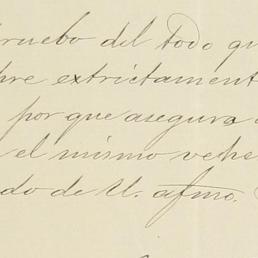 pruebo del todo qu
bre extrictament
por que asegura
el mismo vehe
do de U. afmo.